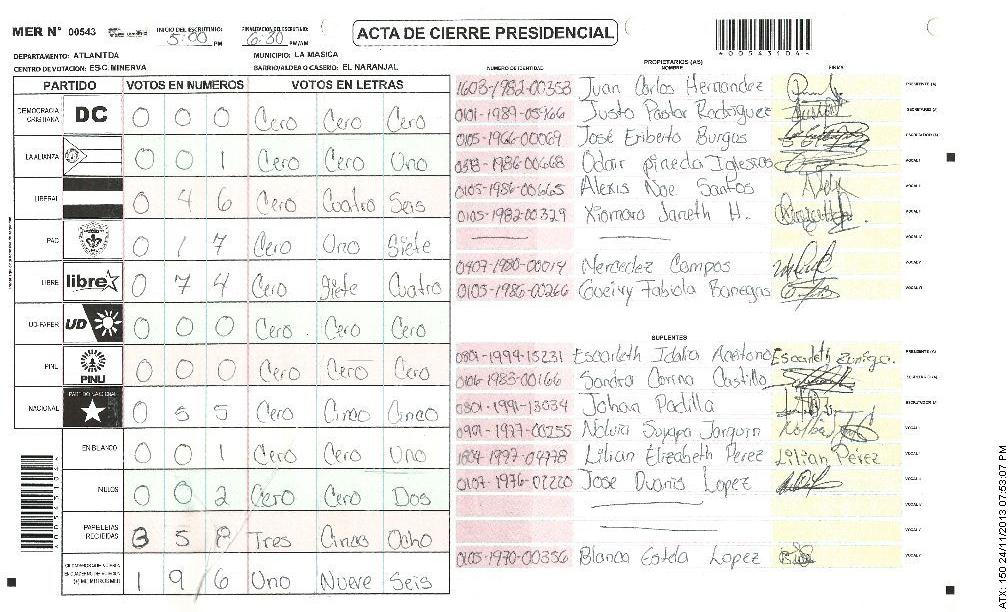 MER N° 00543 INICIO DEL ESCRUTINIO: 5:00 PM FINALIZACION DEL ESCRUTINIO: 6:30 PM/AM ACTA DE CIERRE PRESIDENCIAL
DEPARTAMENTO: ATLANTIDA MUNICIPIO: LA MASICA
CENTRO DE VOTACION: ESC. MINERVA BARRIO/ALDEA O CASERIO: EL NARANJAL
PARTIDO VOTOS EN NUMEROS VOTOS EN LETRAS
DEMOCRACIA CRISTIANA DC 0 0 0 Cero Cero Cero
LA ALIANZA 0 0 1 Cero Cero Uno
LIBERAL 0 4 6 Cero Cuatro Seis
PAC 0 1 7 Cero Uno Siete
LIBRE libre 0 7 4 Cero Siete Cuatro
UD-FAPER UD 0 0 0 Cero Cero Cero
PINU PINU 0 0 0 Cero Cero Cero
NACIONAL PARTIDO NACIONAL 0 5 5 Cero Cinco Cinco
EN BLANCO 0 0 1 Cero Cero Uno
NULOS 0 0 2 Cero Cero Dos
PAPELETAS RECIBIDAS 3 5 8 Tres Cinco Ocho
1 9 6 Uno Nueve Seis
PROPIETARIOS (AS)
NUMERO DE IDENTIDAD NOMBRE FIRMA
1603-1982-00353 Juan Carlos Hernandez PRESIDENTE (A)
0101-1989-05966 Justo Pastor Rodriguez SECRETARIO (A)
0105-1966-00069 José Eriberto Burgos ESCRUTADOR (A)
1986-00668 Odair Pineda Iglesias VOCAL I
0105-1986-00665 Alexis Noe Santos
0105-1982-00329 Xiomara Janeth H.
0407-1980-00019 Mercedez Campos
0105-1986-00266 Fabiola Banegas
SUPLENTES
0801-1994-15231 Escarleth Idalia Escarleth Zuniga PRESIDENTE (A)
0106-1983-00166 Sandra Corina Castillo SECRETARIO (A)
0801-1991-13034 Johan Padilla ESCRUTADOR (A)
0901-1977-00255 Suyapa VOCAL I
1804-1997-04778 Lilian Elizabeth Perez Lilian Pérez
0107-1976-02220 Jose Lopez
0105-1970-00356 Blanca Estela Lopez
ATX: 150 24/11/2013 07:53:07 PM